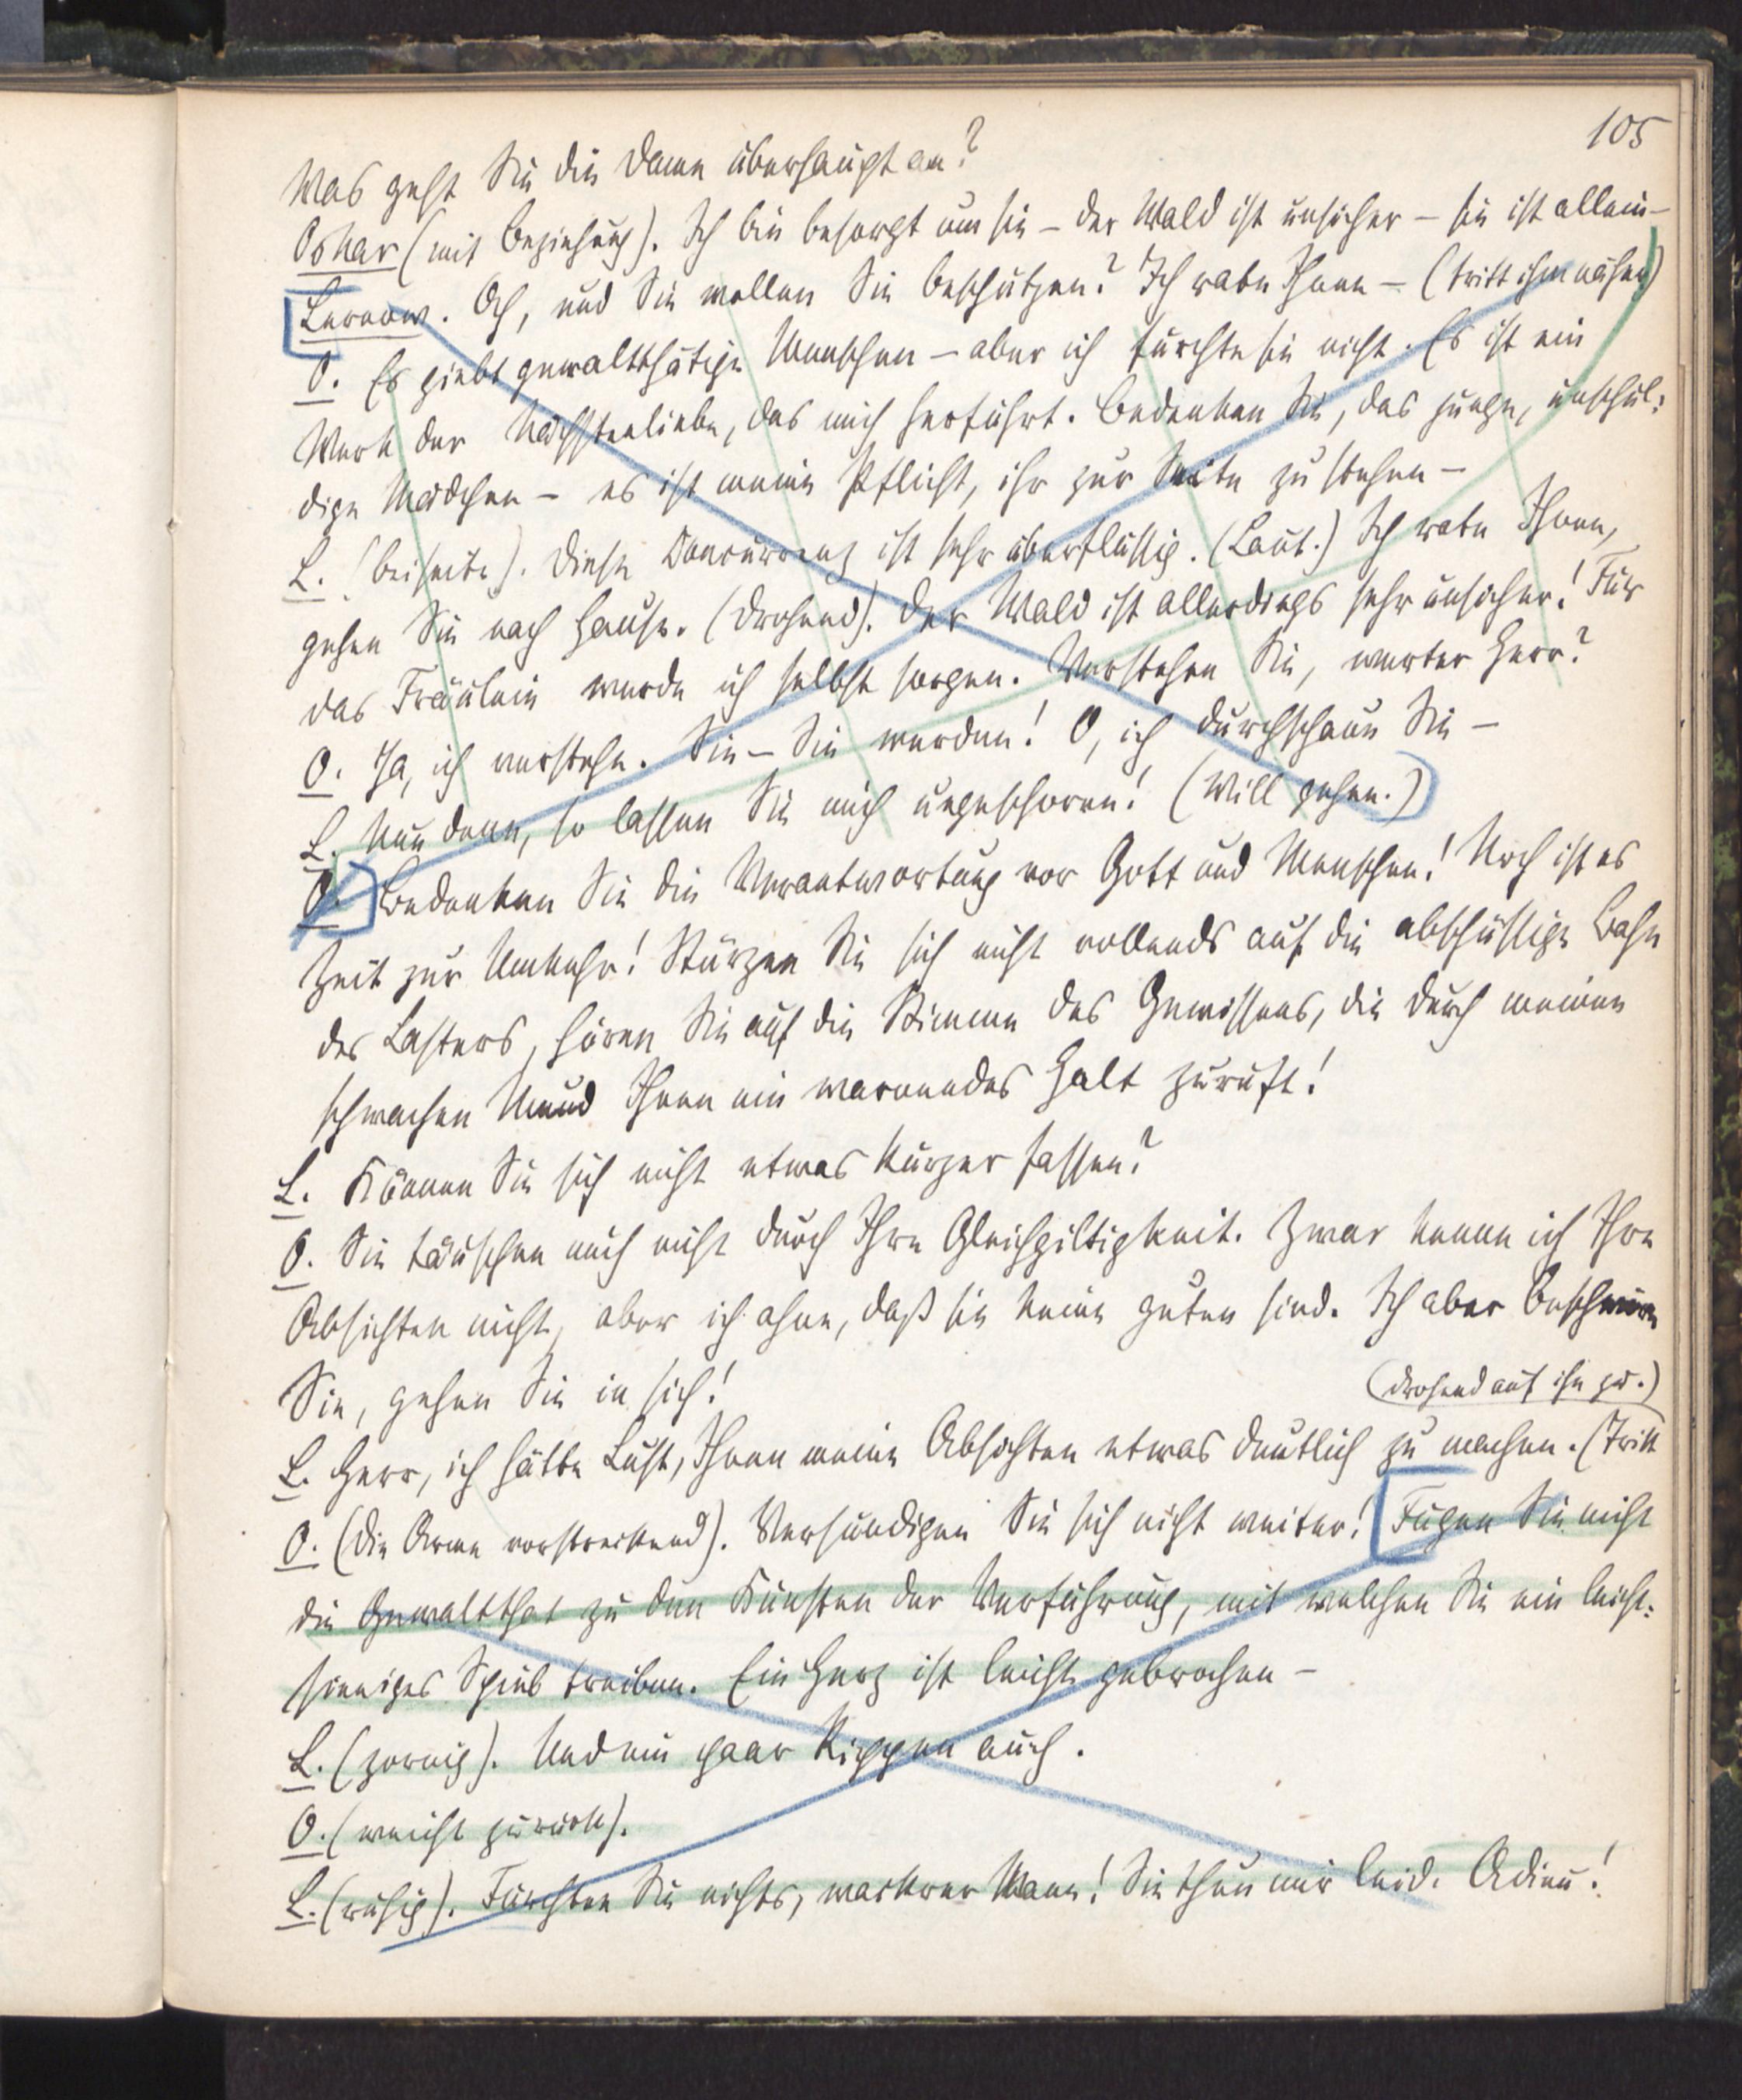 105
Was geht Sie die Dame überhaupt an?
Oskar (mit Beziehung). Ich bin besorgt um sie – der Wald ist unsicher – sie ist allein –
Lernow. Ach, und Sie wollen Sie beschützen? Ich rate Ihnen – (tritt ihm näher)
O. Es giebt gewaltthätige Menschen – aber ich fürchte sie nicht. Es ist ein
Werk der Nächstenliebe, das mich herführt. Bedenken Sie, das junge, unschul:
dige Mädchen – es ist meine Pflicht, ihr zur Seite zu stehen –
L. (beiseite). Diese Concurrenz ist sehr überflüssig. (Laut.) Ich rate Ihnen,
gehen Sie nach Hause. (Drohend). Der Wald ist allerdings sehr unsicher! Für
das Fräulein werde ich selbst sorgen. Verstehen Sie, werter Herr?
O. Ja, ich verstehe. Sie – Sie werden! O, ich durchschaue Sie –
L. Nun denn, so lassen Sie mich ungeschoren! (Will gehen.)
O. Bedenken Sie die Verantwortung vor Gott und Menschen! Noch ist es
Zeit zur Umkehr! Stürzen Sie sich nicht vollends auf die abschüssige Bahn
des Lasters, hören Sie auf die Stimme des Gewissens, die durch meinen
schwachen Mund Ihnen ein warnendes Halt zuruft!
L. Können Sie sich nicht etwas kürzer fassen?
O. Sie täuschen mich nicht durch Ihre Gleichgiltigkeit. Zwar kenne ich Ihre
Absichten nicht, aber ich ahne, daß sie keine guten sind. Ich aber beschwöre
Sie, gehen Sie in sich!
(drohend auf ihn zu.)
L. Herr, ich hätte Lust, Ihnen meine Absichten etwas deutlich zu machen. (Tritt
O. (die Arme vorstreckend). Versündigen Sie sich nicht weiter! Fügen Sie nicht
die Gewaltthat zu den Künsten der Verführung, mit welchen Sie ein leicht:
sinniges Spiel treiben. Ein Herz ist leicht gebrochen –
L. (zornig). Und ein paar Rippen auch.
O. (weicht zurück).
L. (ruhig). Fürchten Sie nichts, wackrer Mann! Sie thun mir leid. Adieu!